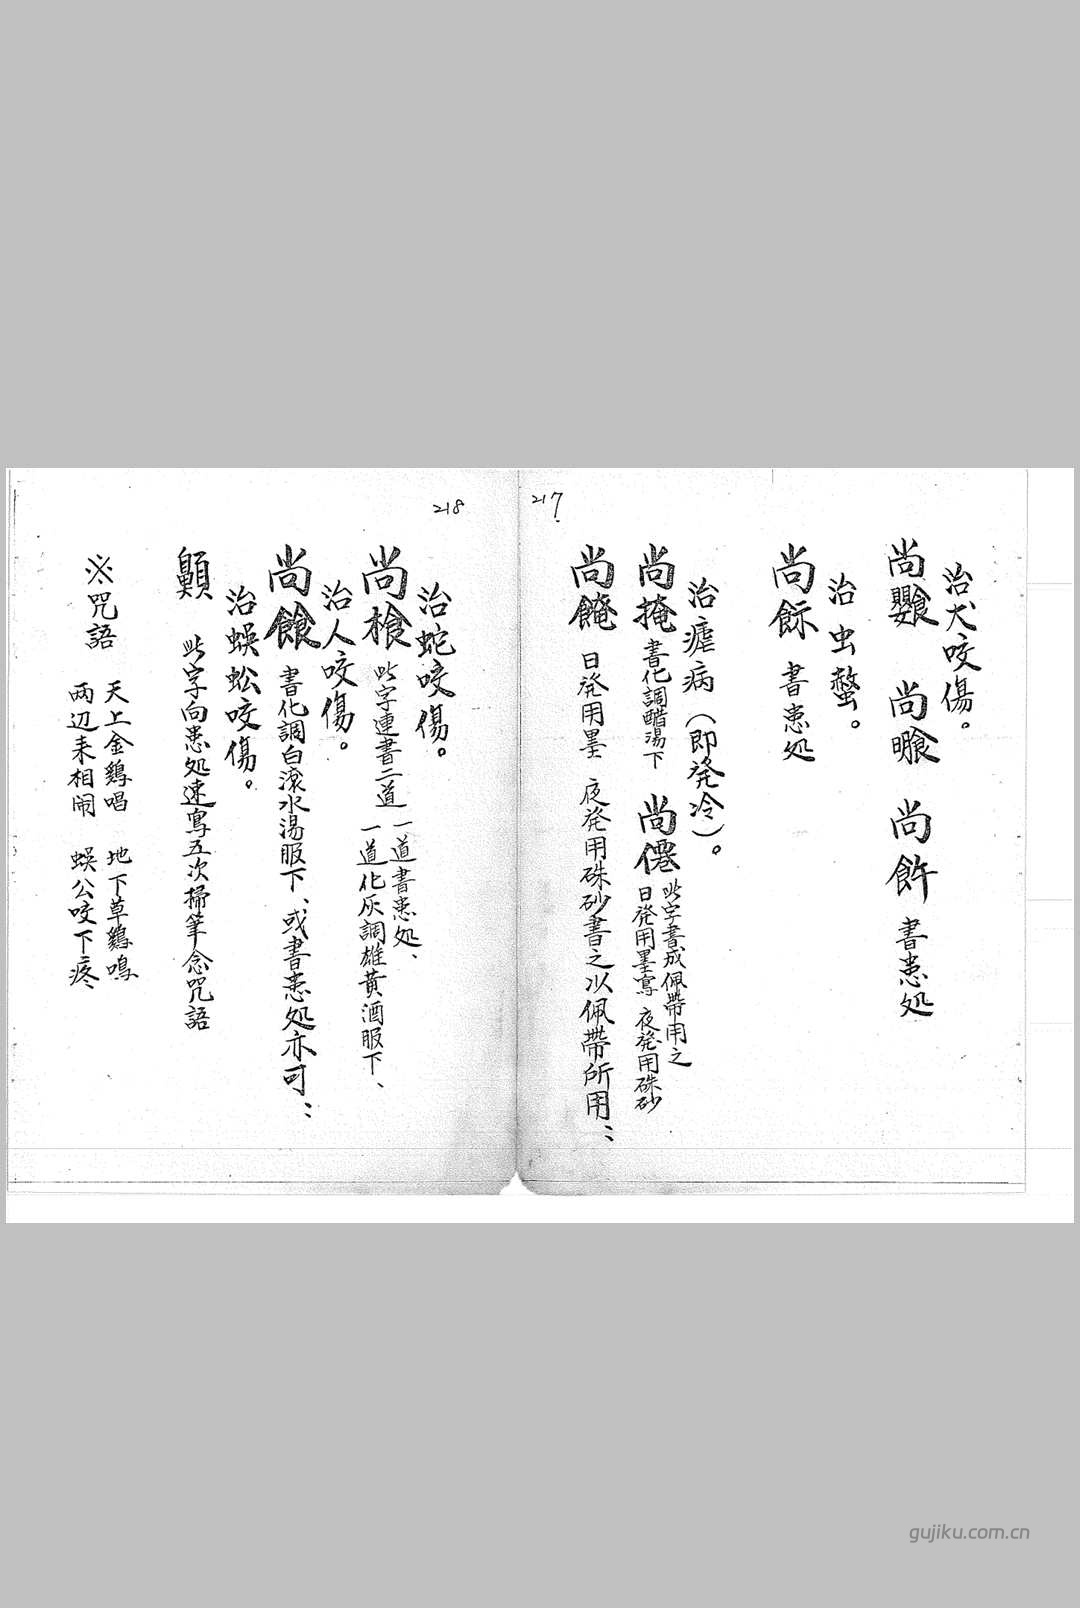 217
治犬咬傷。
尚 尚 尚 書患処
治虫螫。
尚 書患処
治瘧病（即発冷）。
尚掩 書化調醋湯下 尚僊 此字書成佩帶用之
日発用墨寫 夜発用硃砂
尚馣 日発用墨 夜発用硃砂書之以佩帶所用：
218
治蛇咬傷。
尚 此字連書二道 一道書患処、
一道化灰調雄黄酒服下、
治人咬傷。
尚 書化調白滚水湯服下、或書患処亦可：
治蜈蚣咬傷。
此字向患処速寫五次掃筆念咒語
※咒語 天上金鷄唱 地下草鷄鳴
两辺来相闹 蜈公咬下疼
gujiku.com.cn